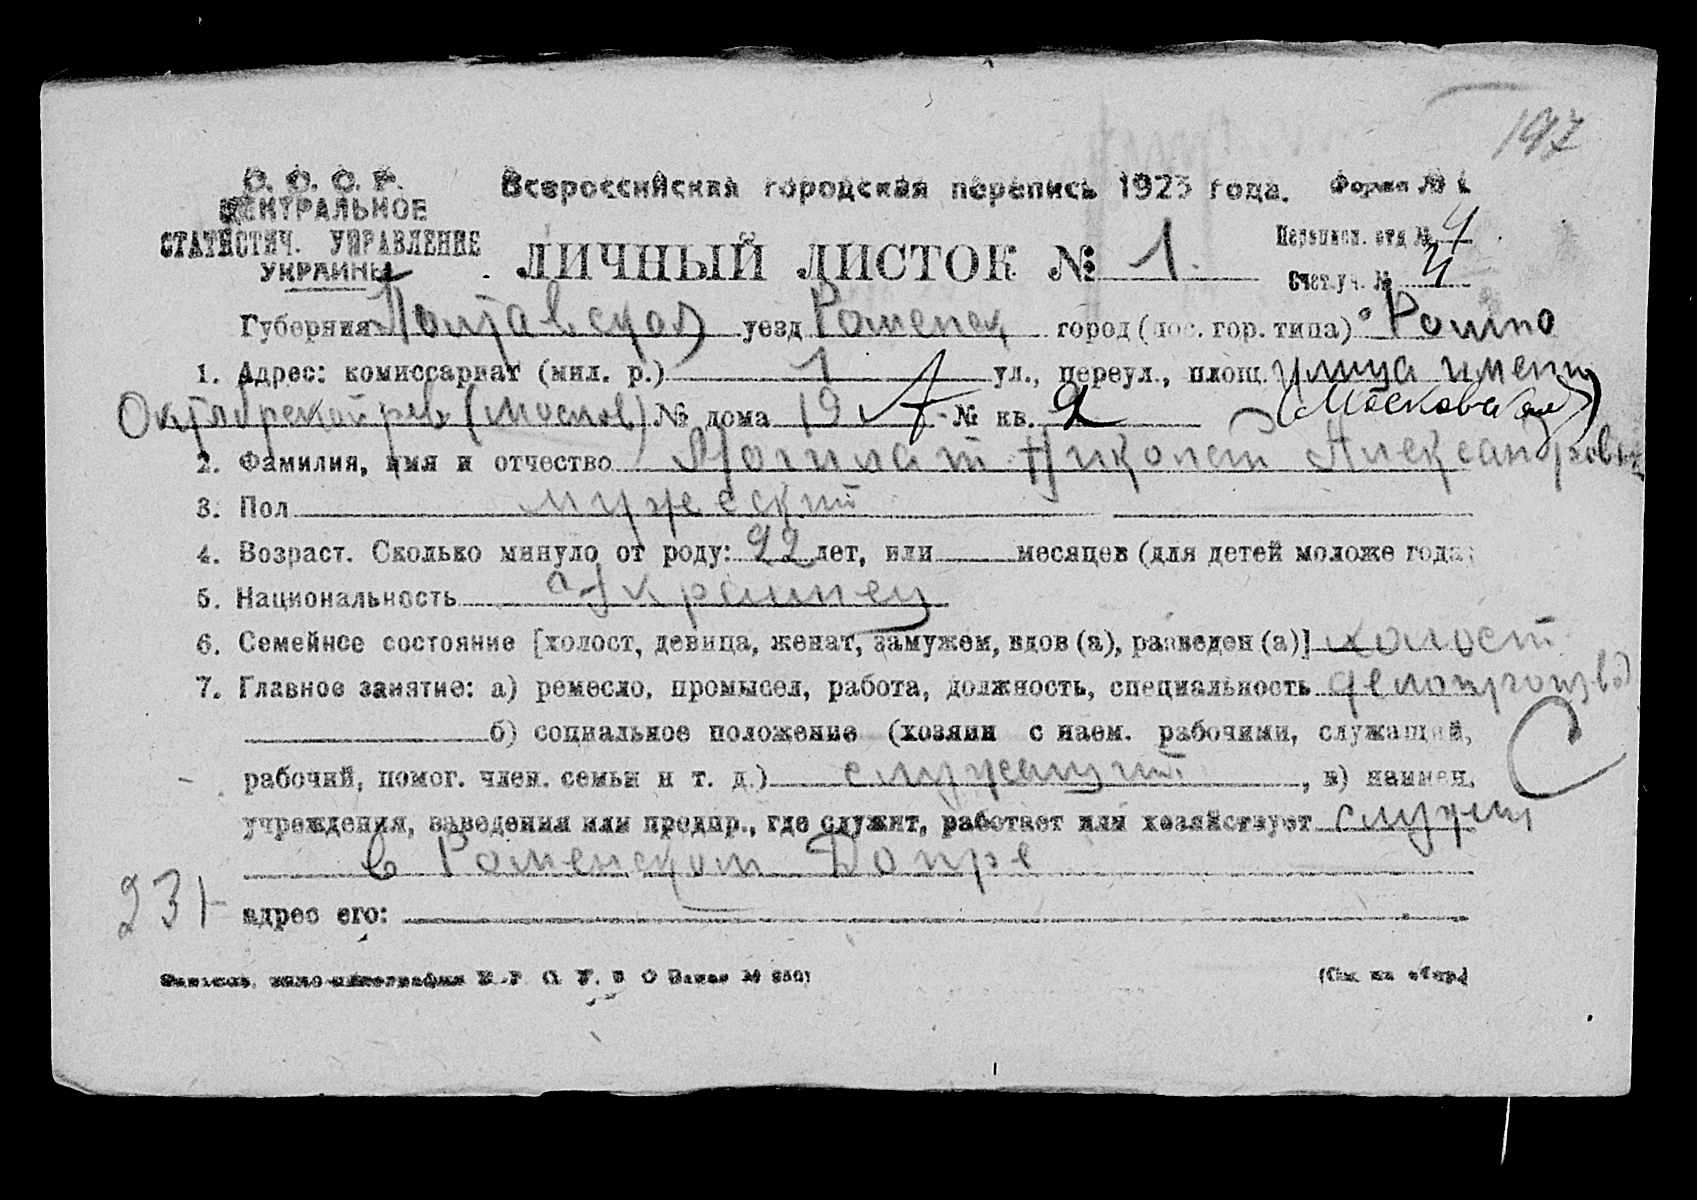 197
С. С. С. Р.
ЦЕНТРАЛЬНОЕ
СТАТИСТИЧ. УПРАВЛЕНИЕ
УКРАИНЫ
Всероссийская городская перепись 1923 года. Форма № 1
ЛИЧНЫЙ ЛИСТОК № 1.
Переписн. отд № 4
Счет. уч. № 4
Губерния Полтавская уезд Роменск город (пос. гор. типа) Ромно
1. Адрес: комиссариат (мил. р.) 1 ул., переул., площ. улица имени
Октябрской рев (Москов) № дома 19 А № кв. 2 (Московская)
2. Фамилия, имя и отчество Николай Александрович
3. Пол мужеский
4. Возраст. Сколько минуло от роду: 22 лет, или месяцев (для детей моложе года)
5. Национальность Украинец
6. Семейнсе состояние [холост, девица, женат, замужем, вдов (а), разведен (а)] холост
7. Главное занятие: а) ремесло, промысел, работа, должность, специальность делопроизвод
б) социальное положение (хозяин с наем. рабочими, служащий,
рабочий, помог. член. семьи и т. д.) служащий, в) наимен.
учреждения, заведения или предпр., где служит, работает или хозяйствует служит
в Роменском Допре
231 адрес его:
(См. на обор.)